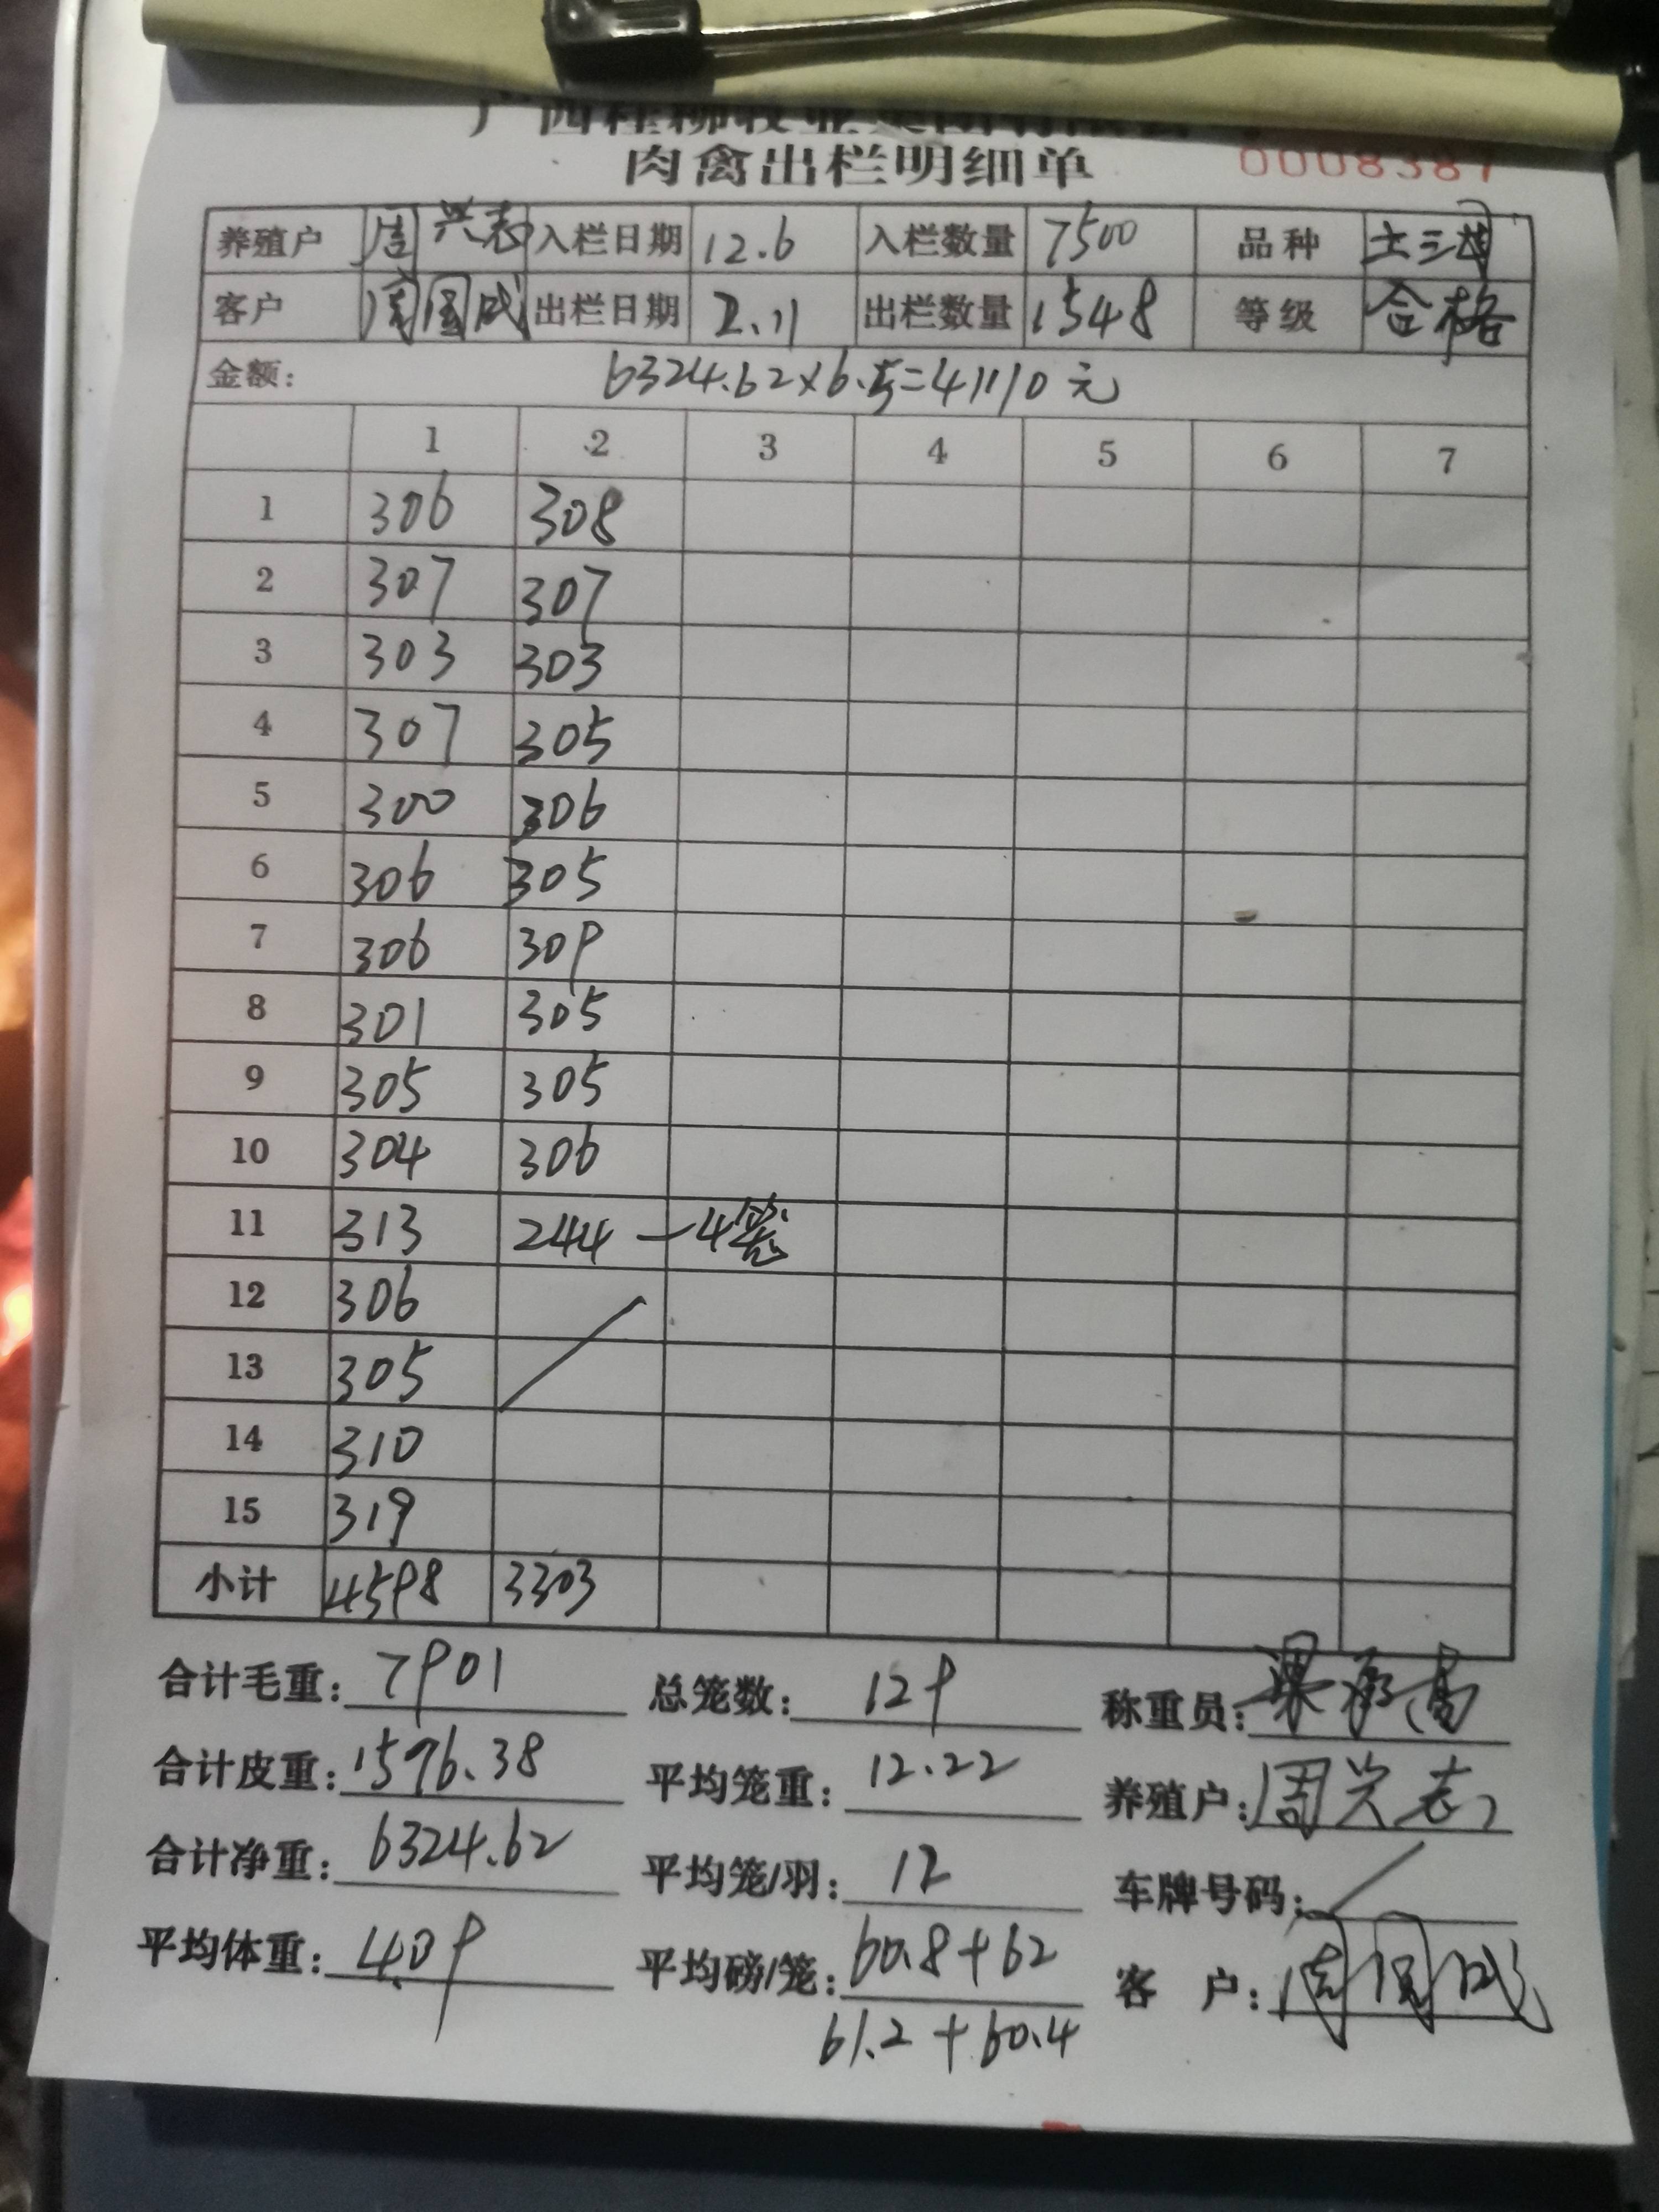 肉禽出栏明细单 0008387
养殖户 周兴志 入栏日期 12.6 入栏数量 7500 品种 土三
客户 周国成 出栏日期 2.11 出栏数量 1548 等级 合格
金额: 6324.62×6.5=41110元
1 2 3 4 5 6 7
1 306 308
2 307 307
3 303 303
4 307 305
5 300 306
6 306 305
7 306 309
8 301 305
9 305 305
10 304 306
11 313 244 —4笼
12 306
13 305
14 310
15 319
小计 4598 3303
合计毛重: 7901 总笼数: 129 称重员:
合计皮重: 1576.38 平均笼重: 12.22 养殖户: 周兴志
合计净重: 6324.62 平均笼/羽: 12 车牌号码:
平均体重: 4.09 平均磅/笼: 60.8+62 客 户: 周国成
61.2+60.4